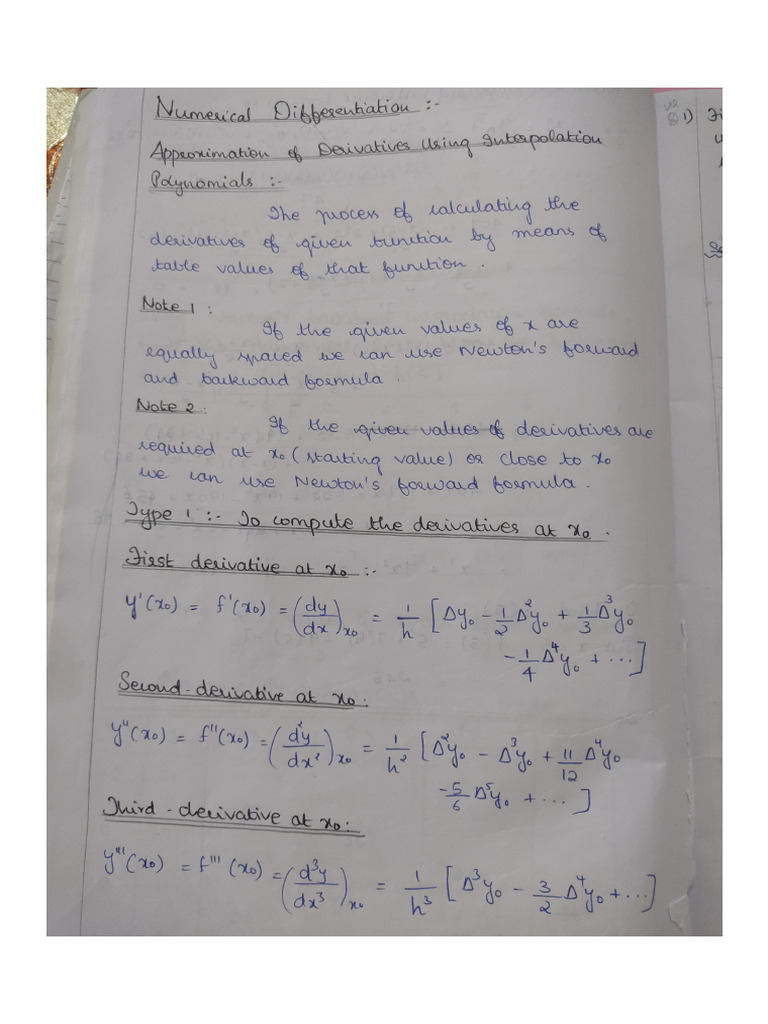 Numerical Differentiation :-
Approximation of Derivatives Using Interpolation
Polynomials :-
The process of calculating the
derivatives of given function by means of
table values of that function.
Note 1 :
If the given values of x are
equally spaced we can use Newton's forward
and backward formula.
Note 2 :
If the given values of derivatives are
required at x₀ (starting value) or close to x₀
we can use Newton's forward formula.
Type 1 :- To compute the derivatives at x₀.
First derivative at x₀ :-
y'(x₀) = f'(x₀) = (dy/dx)x₀ = 1/h [Δy₀ - 1/2 Δ²y₀ + 1/3 Δ³y₀
- 1/4 Δ⁴y₀ + ...]
Second-derivative at x₀ :
y''(x₀) = f''(x₀) = (d²y/dx²)x₀ = 1/h² [Δ²y₀ - Δ³y₀ + 11/12 Δ⁴y₀
- 5/6 Δ⁵y₀ + ...]
Third-derivative at x₀ :
y'''(x₀) = f'''(x₀) = (d³y/dx³)x₀ = 1/h³ [Δ³y₀ - 3/2 Δ⁴y₀ + ...]
1)